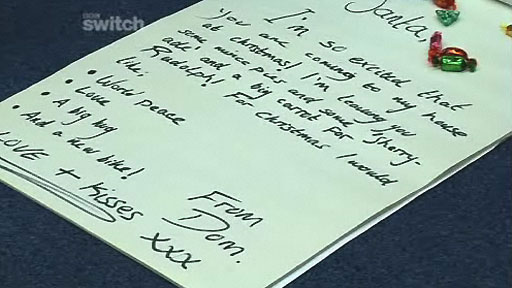 BBC switch
Santa,
I'm so excited that
you are coming to my house
at christmas! I'm leaving you
some mince pies and some 'sherry-
ade' and a big carrot for
Rudolph! For Christmas I would
like:
• World peace
• Love
• A big hug
• And a new bike!
LOVE + Kisses
From
Dom.
xxx